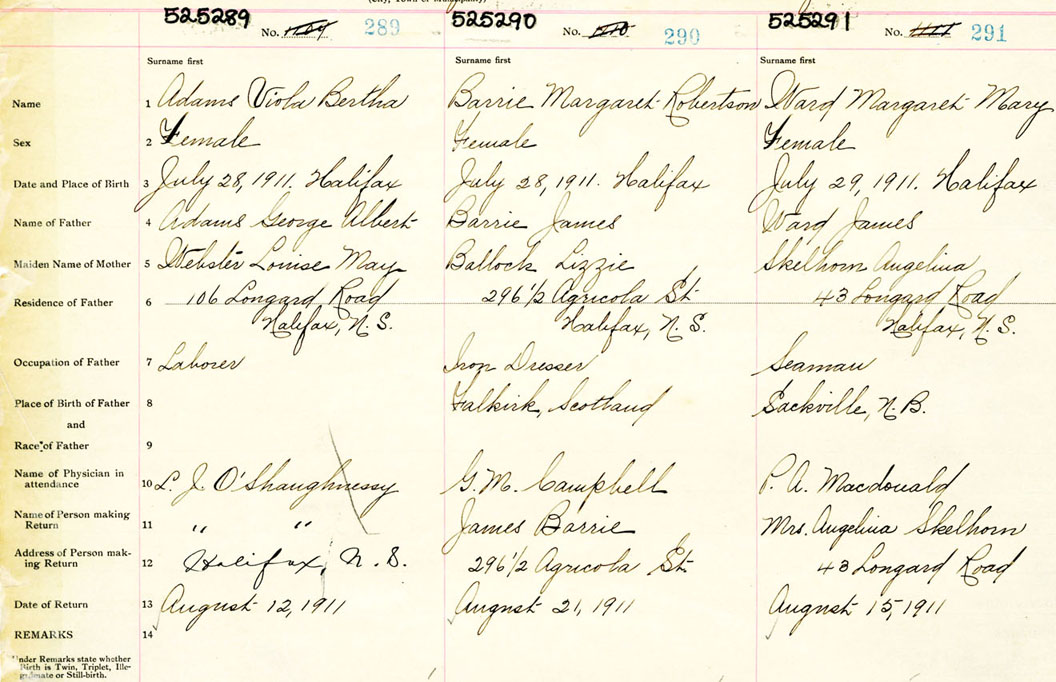 (City, Town or Municipality)
525289 525290 525291
No. 289 No. 290 No. 291
Surname first Surname first Surname first
Name 1 Adams Viola Bertha Barrie Margaret Robertson Ward Margaret Mary
Sex 2 Female Female Female
Date and Place of Birth 3 July 28, 1911. Halifax July 28, 1911. Halifax July 29, 1911. Halifax
Name of Father 4 Adams George Albert Barrie James Ward James
Maiden Name of Mother 5 Webster Louise May Ballock Lizzie Skelhorn Angelina
Residence of Father 6 106 Longard Road 296 1/2 Agricola St 43 Longard Road
Halifax, N. S. Halifax, N. S. Halifax, N. S.
Occupation of Father 7 Laborer Iron Dresser Seaman
Place of Birth of Father 8 Falkirk, Scotland Sackville, N. B.
and
Race of Father 9
Name of Physician in
attendance 10 L. J. O'Shaughnessy G. M. Campbell P. A. Macdonald
Name of Person making
Return 11 " " James Barrie Mrs. Angelina Skelhorn
Address of Person mak-
ing Return 12 Halifax, N. S. 296 1/2 Agricola St 43 Longard Road
Date of Return 13 August 12, 1911 August 21, 1911 August 15, 1911
REMARKS 14
Under Remarks state whether
Birth is Twin, Triplet, Ille-
gitimate or Still-birth.